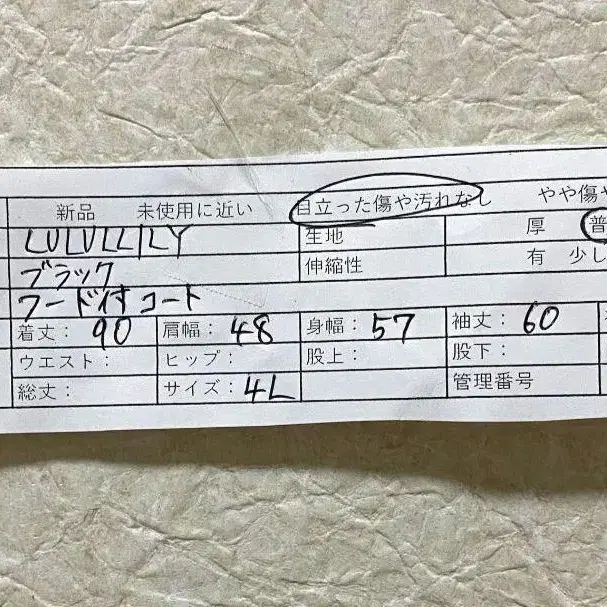 新品 未使用に近い 目立った傷や汚れなし やや傷や
LULULLILY 生地 厚 普
ブラック 伸縮性 有 少し
フード付コート
着丈：90 肩幅：48 身幅：57 袖丈：60
ウエスト： ヒップ： 股上： 股下：
総丈： サイズ：4L 管理番号